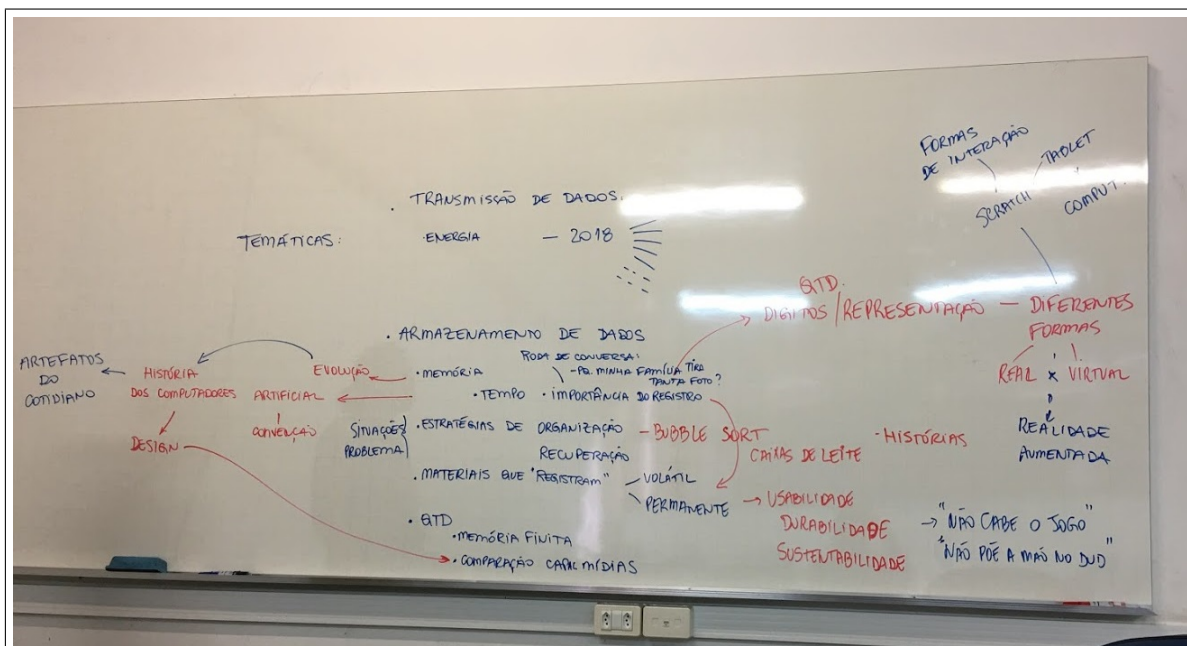 FORMAS
DE INTERAÇÃO
TABLET
SCRATCH
COMPUT.
. TRANSMISSÃO DE DADOS.
TEMÁTICAS:
·ENERGIA — 2018
QTD.
DIGITOS / REPRESENTAÇÃO — DIFERENTES
FORMAS
REAL x VIRTUAL
REALIDADE
AUMENTADA
· ARMAZENAMENTO DE DADOS
RODA DE CONVERSA:
- PQ. MINHA FAMÍLIA TIRA
TANTA FOTO?
· MEMÓRIA
· TEMPO · IMPORTÂNCIA DO REGISTRO
EVOLUÇÃO
ARTEFATOS
DO
COTIDIANO
HISTÓRIA
DOS COMPUTADORES
ARTIFICIAL
CONVENÇÃO
DESIGN
SITUAÇÕES
PROBLEMA
. ESTRATÉGIAS DE ORGANIZAÇÃO — BUBBLE SORT
RECUPERAÇÃO
CAIXAS DE LEITE
· HISTÓRIAS
. MATERIAIS QUE "REGISTRAM"
VOLÁTIL
PERMANENTE → USABILIDADE
DURABILIDADE
SUSTENTABILIDADE
→ "NÃO CABE O JOGO"
"NÃO PÕE A MÃO NO DVD"
· QTD
· MEMÓRIA FINITA
· COMPARAÇÃO MÍDIAS